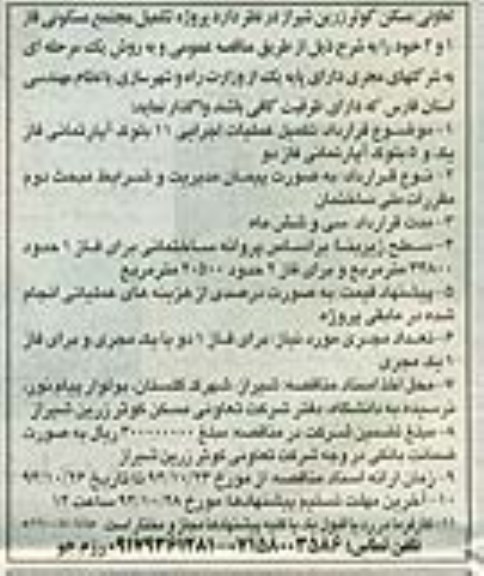 تعاونی مسکن کوثر زرین شیراز در نظر دارد پروژه تکمیل مجتمع مسکونی فاز
۱ و ۲ خود را به شرح ذیل از طریق مناقصه عمومی و به روش یک مرحله ای
به شرکتهای مجری دارای پایه یک از وزارت راه و شهرسازی یا نظام مهندسی
استان فارس که دارای ظرفیت کافی باشند واگذار نماید:
۱- موضوع قرارداد: تکمیل عملیات اجرایی ۱۱ بلوک آپارتمانی فاز
یک و ۵ بلوک آپارتمانی فاز دو
۲- نوع قرارداد: به صورت پیمان مدیریت و شرایط مبحث دوم
مقررات ملی ساختمان
۳- مدت قرارداد: سی و شش ماه
۴- سطح زیربنا: براساس پروانه ساختمانی برای فاز ۱ حدود
۳۹۸۰۰ مترمربع و برای فاز ۲ حدود ۲۰۵۰۰ مترمربع
۵- پیشنهاد قیمت: به صورت درصدی از هزینه های عملیاتی انجام
شده در مابقی پروژه
۶- تعداد مجری مورد نیاز: برای فاز ۱ دو یا یک مجری و برای فاز
یک مجری
۷- محل اخذ اسناد مناقصه: شیراز، شهرک گلستان، بولوار پیام نور،
نرسیده به دانشگاه، دفتر شرکت تعاونی مسکن کوثر زرین شیراز
۸- مبلغ تضمین شرکت در مناقصه: مبلغ ۳۰۰۰۰۰۰۰۰ ریال به صورت
ضمانت بانکی در وجه شرکت تعاونی کوثر زرین شیراز
۹- زمان ارائه اسناد مناقصه: از مورخ ۹۳/۱۰/۲۳ تا تاریخ ۹۳/۱۰/۲۶
۱۰- آخرین مهلت تسلیم پیشنهادها: مورخ ۹۳/۱۰/۲۸ ساعت ۱۲
۱۱- کارفرما در رد یا قبول یک یا کلیه پیشنهادها مجاز و مختار است.
تلفن تماس: ۰۷۱۵۸۰۰۳۵۸۶-۰۹۱۷۹۳۶۱۲۸۱ رزم جو